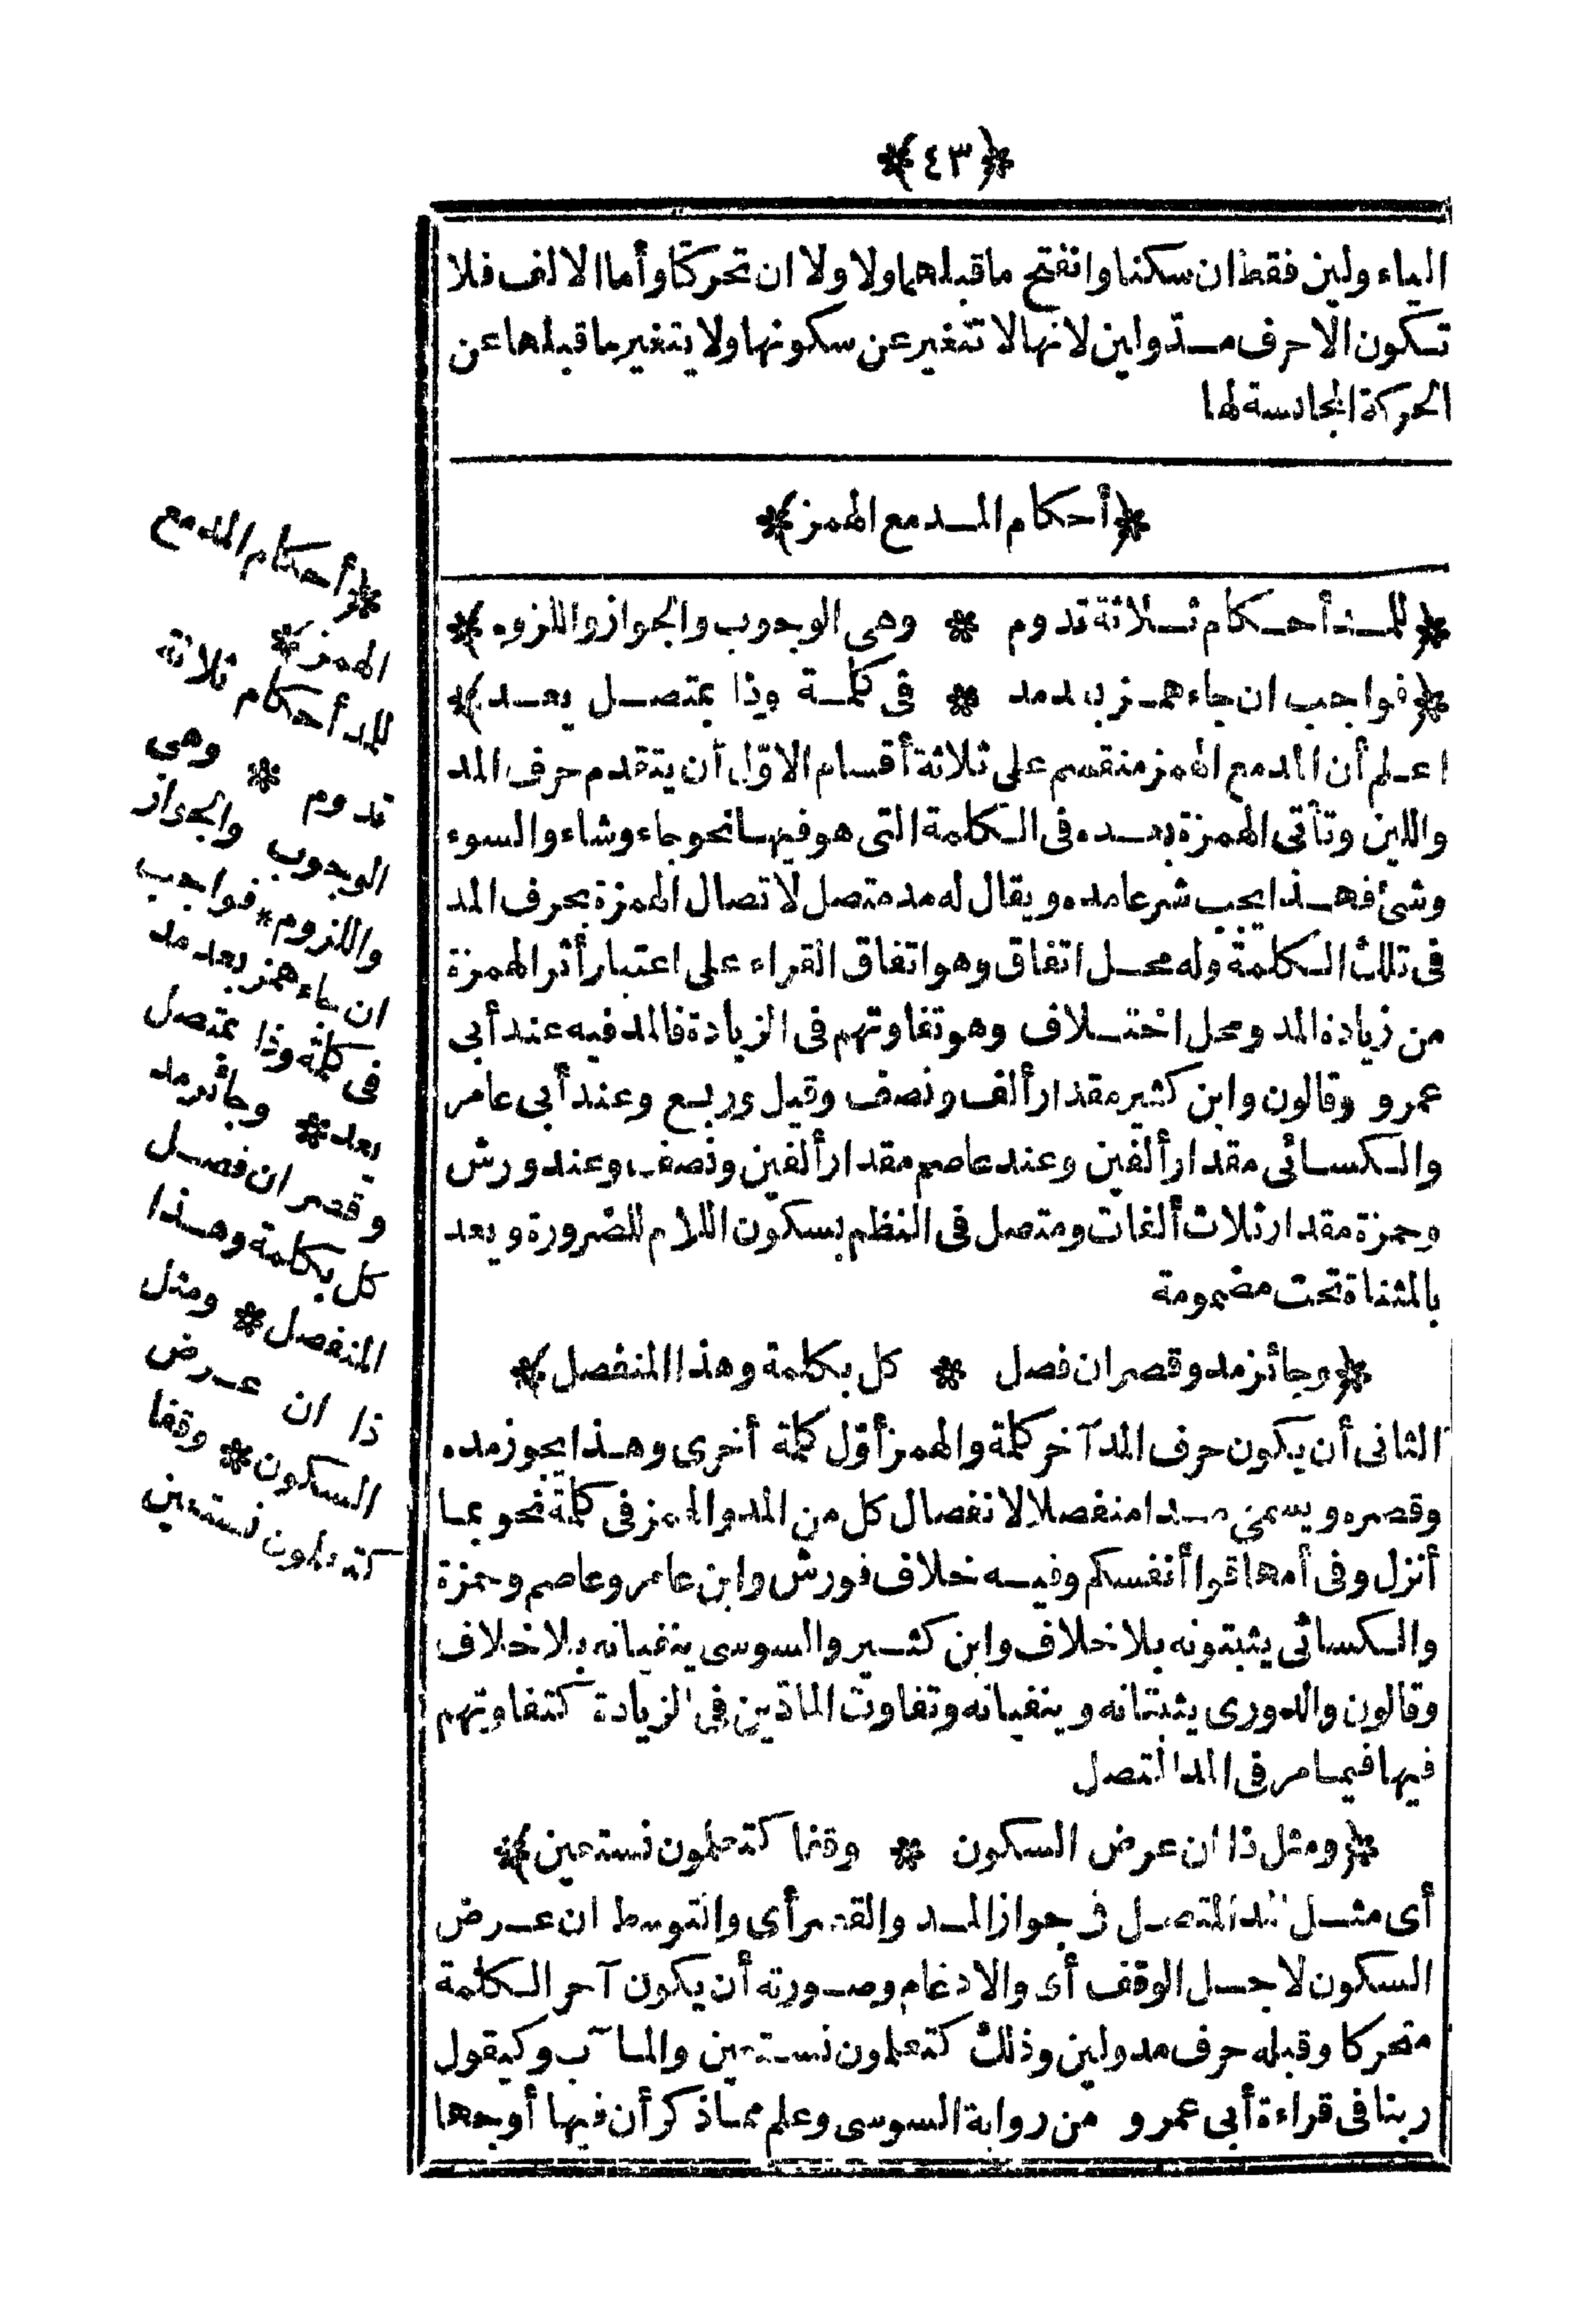 ﴿٤٣﴾
الياء ولين فقط ان سكنا وانفتح ماقبلهما ولا ولا ان تحركتا وأما الالف فلا
تكون الاحرف مدّ ولين لانها لا تتغير عن سكونها ولا يتغير ماقبلها عن
الحركة المجانسة لها
﴿أحكام المد مع الهمز﴾
﴿للمد أحكام ثلاثة تدوم * وهى الوجوب والجواز واللزوم﴾
﴿فواجب ان جاء همز بعد مد * فى كلمة وذا بمتصل يعد﴾
اعلم أن المد مع الهمز منقسم على ثلاثة أقسام الاوّل أن يتقدم حرف المد
واللين وتأتى الهمزة بعده فى الكلمة التى هو فيها نحو جاء وشاء والسوء
وشئ فهذا يجب شرعا مده ويقال له مد متصل لاتصال الهمزة بحرف المد
فى تلك الكلمة وله محل اتفاق وهو اتفاق القراء على اعتبار أثر الهمزة
من زيادة المد ومحل اختلاف وهو تفاوتهم فى الزيادة فالمد فيه عند أبى
عمرو وقالون وابن كثير مقدار ألف ونصف وقيل وربع وعند أبى عامر
والكسائى مقدار ألفين وعند عاصم مقدار ألفين ونصف وعند ورش
وحمزة مقدار ثلاث ألفات ومتصل فى النظم بسكون اللام للضرورة ويعد
بالمثناة تحت مضمومة
﴿وجائز مد وقصر ان فصل * كل بكلمة وهذا المنفصل﴾
الثانى أن يكون حرف المد آخر كلمة والهمز أوّل كلمة أخرى وهذا يجوز مده
وقصره ويسمى مدا منفصلا لانفصال كل من المد والهمز فى كلمة نحو بما
أنزل وفى أمها قوا أنفسكم وفيه خلاف فورش وابن عامر وعاصم وحمزة
والكسائى يثبتونه بلا خلاف وابن كثير والسوسى ينفيانه بلا خلاف
وقالون والدورى يثبتانه وينفيانه وتفاوت المادّين فى الزيادة كتفاوتهم
فيها فيما مر فى المد المتصل
﴿ومثل ذا ان عرض السكون * وقفا كتعلمون نستعين﴾
أى مثل المد المتصل فى جواز المد والقصر أى والتوسط ان عرض
السكون لاجل الوقف أى والادغام وصورته أن يكون آخر الكلمة
متحركا وقبله حرف مد ولين وذلك كتعلمون نستعين والمآب وكيقول
ربنا فى قراءة أبى عمرو من رواية السوسى وعلم مما ذكر أن فيها أوجها
﴿أحكام المد مع
الهمز*
للمد أحكام ثلاثة
تدوم * وهى
الوجوب والجواز
واللزوم * فواجب
ان جاء همز بعد مد
فى كلمة وذا بمتصل
يعد * وجائز مد
وقصر ان فصل
كل بكلمة وهذا
المنفصل * ومثل
ذا ان عرض
السكون * وقفا
كتعلمون نستعين